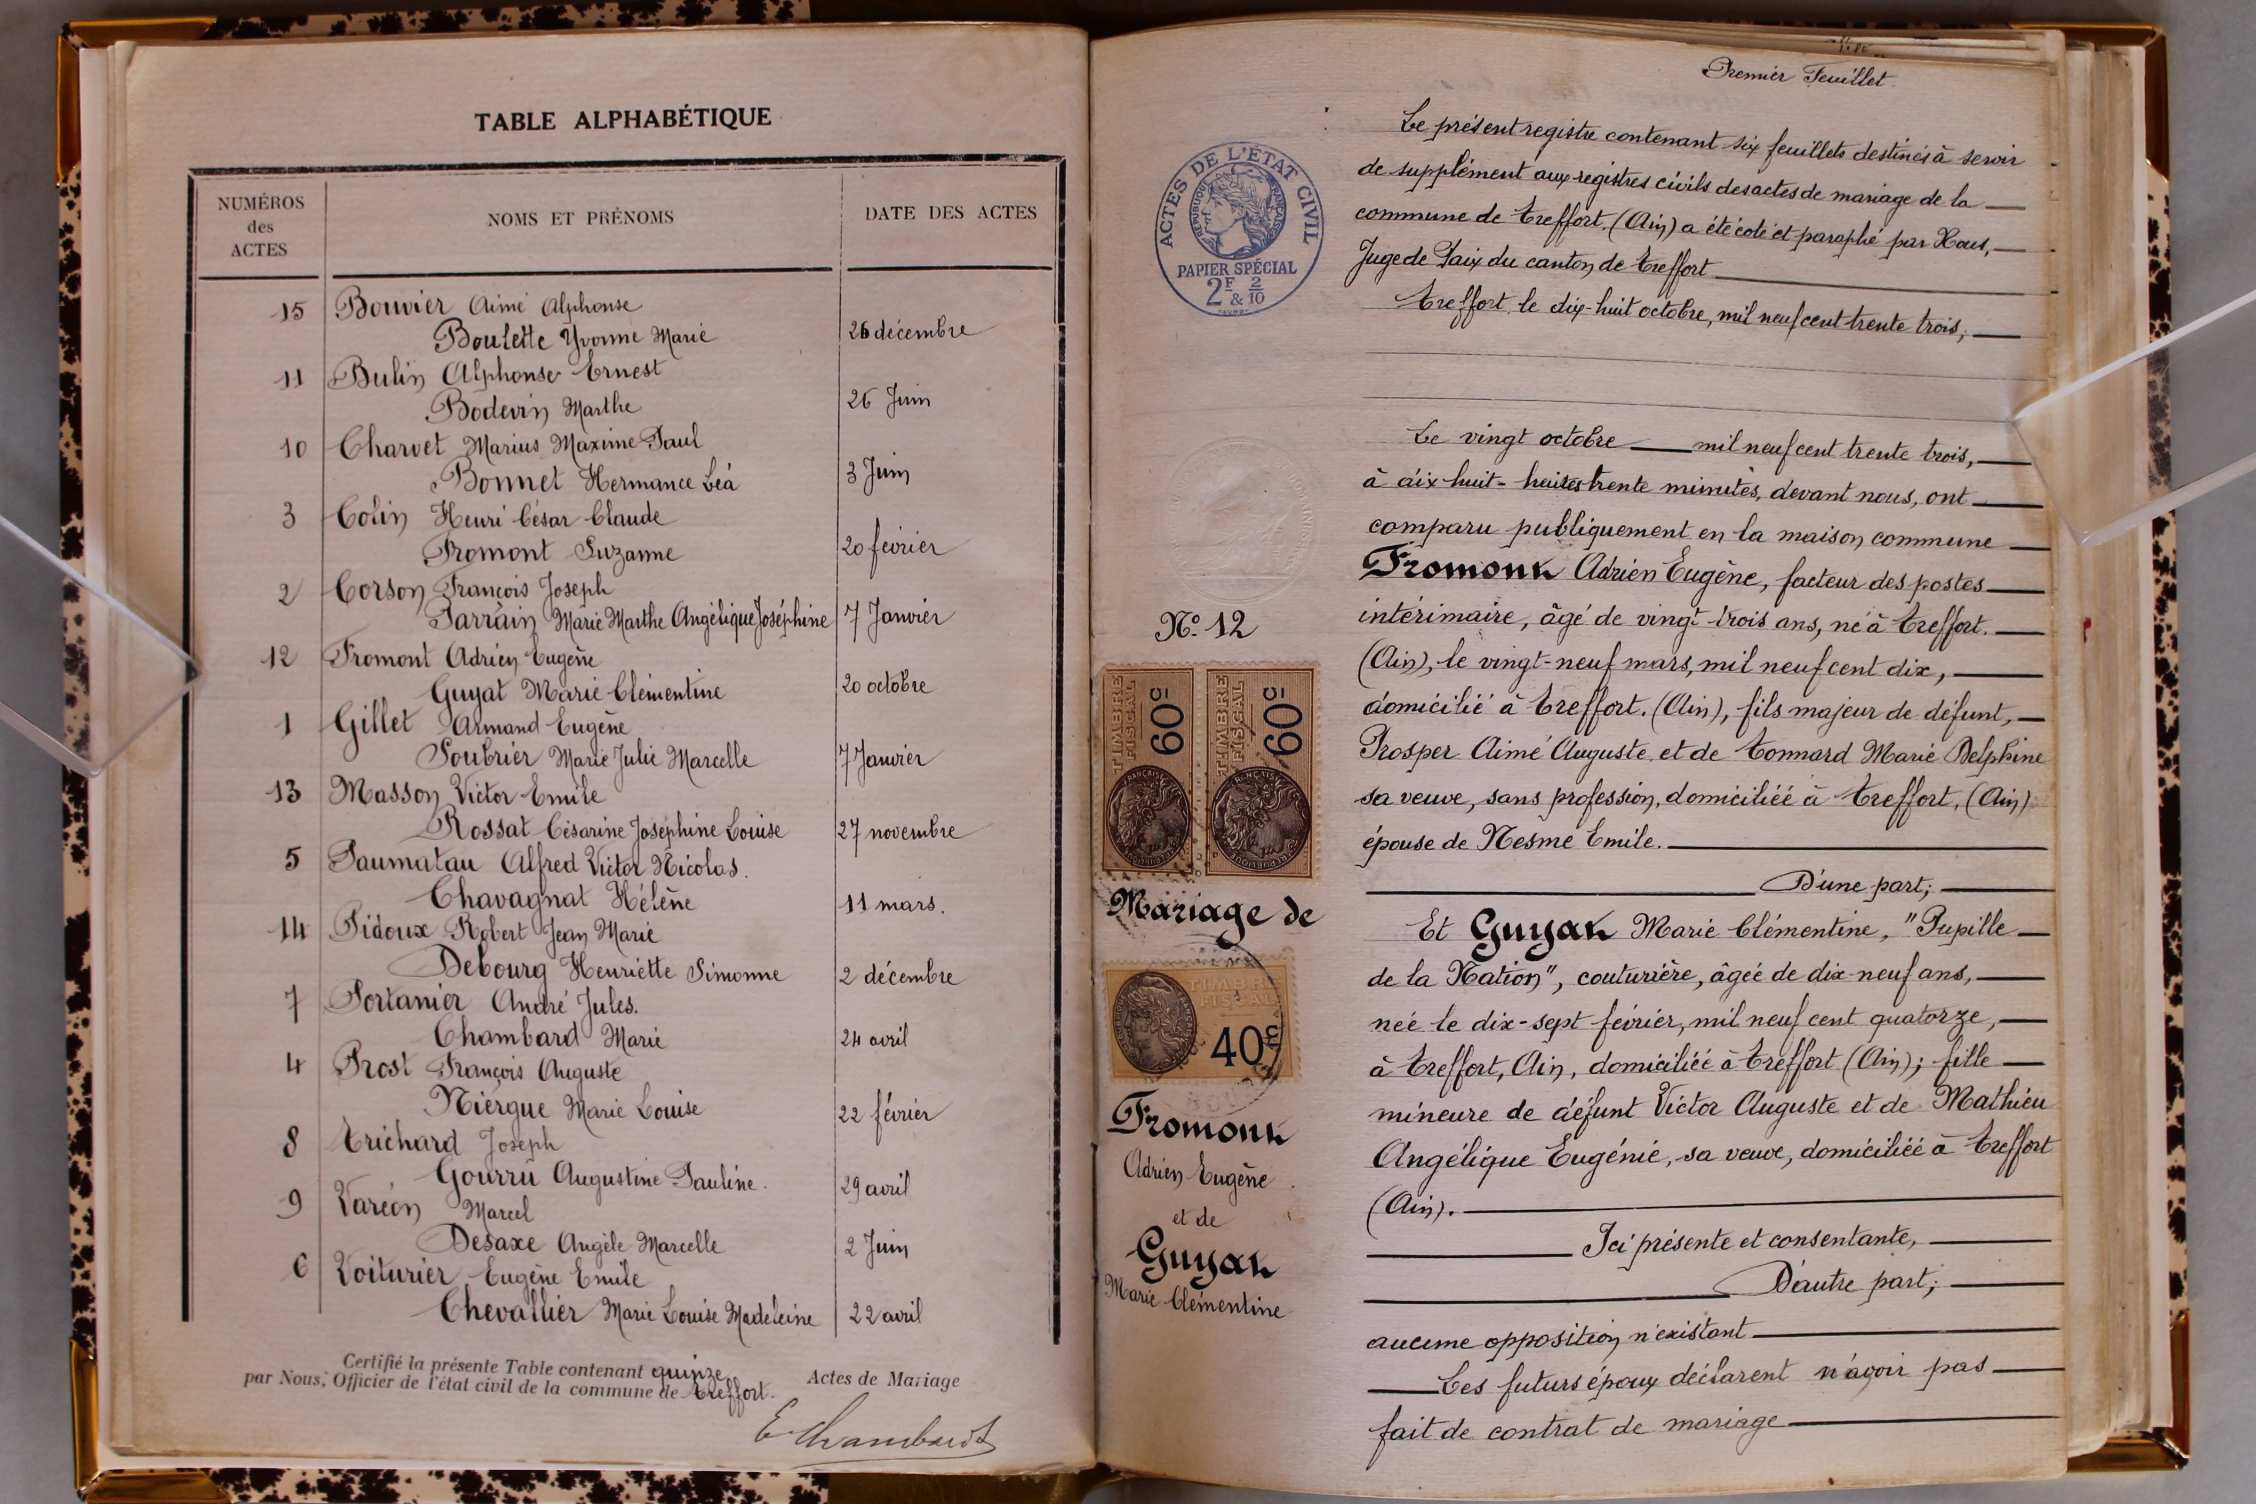 TABLE ALPHABÉTIQUE
NUMÉROS
des
ACTES
NOMS ET PRÉNOMS
DATE DES ACTES
15 Bouvier Aimé Alphonse
Boulette Yvonne Marie 26 décembre
11 Bulin Alphonse Ernest
Bodevin Marthe 26 Juin
10 Charvet Marius Maxime Paul
Bonnet Hermance Léa 3 Juin
3 Colin Henri César Claude
Fromont Suzanne 20 février
2 Corson François Joseph
Parrain Marie Marthe Angélique Joséphine 7 Janvier
12 Fromont Adrien Eugène
Guyat Marie Clémentine 20 octobre
1 Gillet Armand Eugène
Soubrier Marie Julie Marcelle 7 Janvier
13 Masson Victor Emile
Rossat Césarine Joséphine Louise 27 novembre
5 Paumatau Alfred Victor Nicolas.
Chavagnat Hélène 11 mars.
14 Pidoux Robert Jean Marie
Debourg Henriette Simonne 2 décembre
7 Portanier André Jules.
Chambard Marie 24 avril
4 Prost François Auguste
Niergue Marie Louise 22 février
8 Trichard Joseph
Gourru Augustine Pauline. 29 avril
9 Varéon Marcel
Desaxe Angèle Marcelle 2 Juin
6 Voiturier Eugène Emile
Chevallier Marie Louise Madeleine 22 avril
Certifié la présente Table contenant quinze Actes de Mariage
par Nous, Officier de l'état civil de la commune de Treffort.
E. Chambard
Premier Feuillet
ACTES DE L'ÉTAT CIVIL
RÉPUBLIQUE FRANÇAISE
PAPIER SPÉCIAL
2F & 2/10
Le présent registre contenant six feuillets destinés à servir
de supplément aux registres civils des actes de mariage de la
commune de Treffort. (Ain) a été coté et paraphé par Nous,
Juge de Paix du canton de Treffort
Treffort, le dix-huit octobre, mil neuf cent trente trois,
Le vingt octobre mil neuf cent trente trois,
à dix huit heures trente minutes, devant nous, ont
comparu publiquement en la maison commune
Fromont Adrien Eugène, facteur des postes
intérimaire, âgé de vingt-trois ans, né à Treffort.
(Ain), le vingt-neuf mars, mil neuf cent dix,
domicilié à Treffort. (Ain), fils majeur de défunt,
Prosper Aimé Auguste et de Tonnard Marie Delphine
sa veuve, sans profession, domiciliée à Treffort, (Ain)
épouse de Nesme Emile.
D'une part;
Et Guyat Marie Clémentine, "Pupille
de la Nation", couturière, âgée de dix-neuf ans,
née le dix-sept février, mil neuf cent quatorze,
à Treffort, Ain, domiciliée à Treffort (Ain); fille
mineure de défunt Victor Auguste et de Mathieu
Angélique Eugénie, sa veuve, domiciliée à Treffort
(Ain).
Ici présente et consentante,
D'autre part;
aucune opposition n'existant
Les futurs époux déclarent n'avoir pas
fait de contrat de mariage
No. 12
TIMBRE FISCAL 60c
TIMBRE FISCAL 60c
Mariage de
TIMBRE FISCAL 40c
Fromont
Adrien Eugène
et de
Guyat
Marie Clémentine